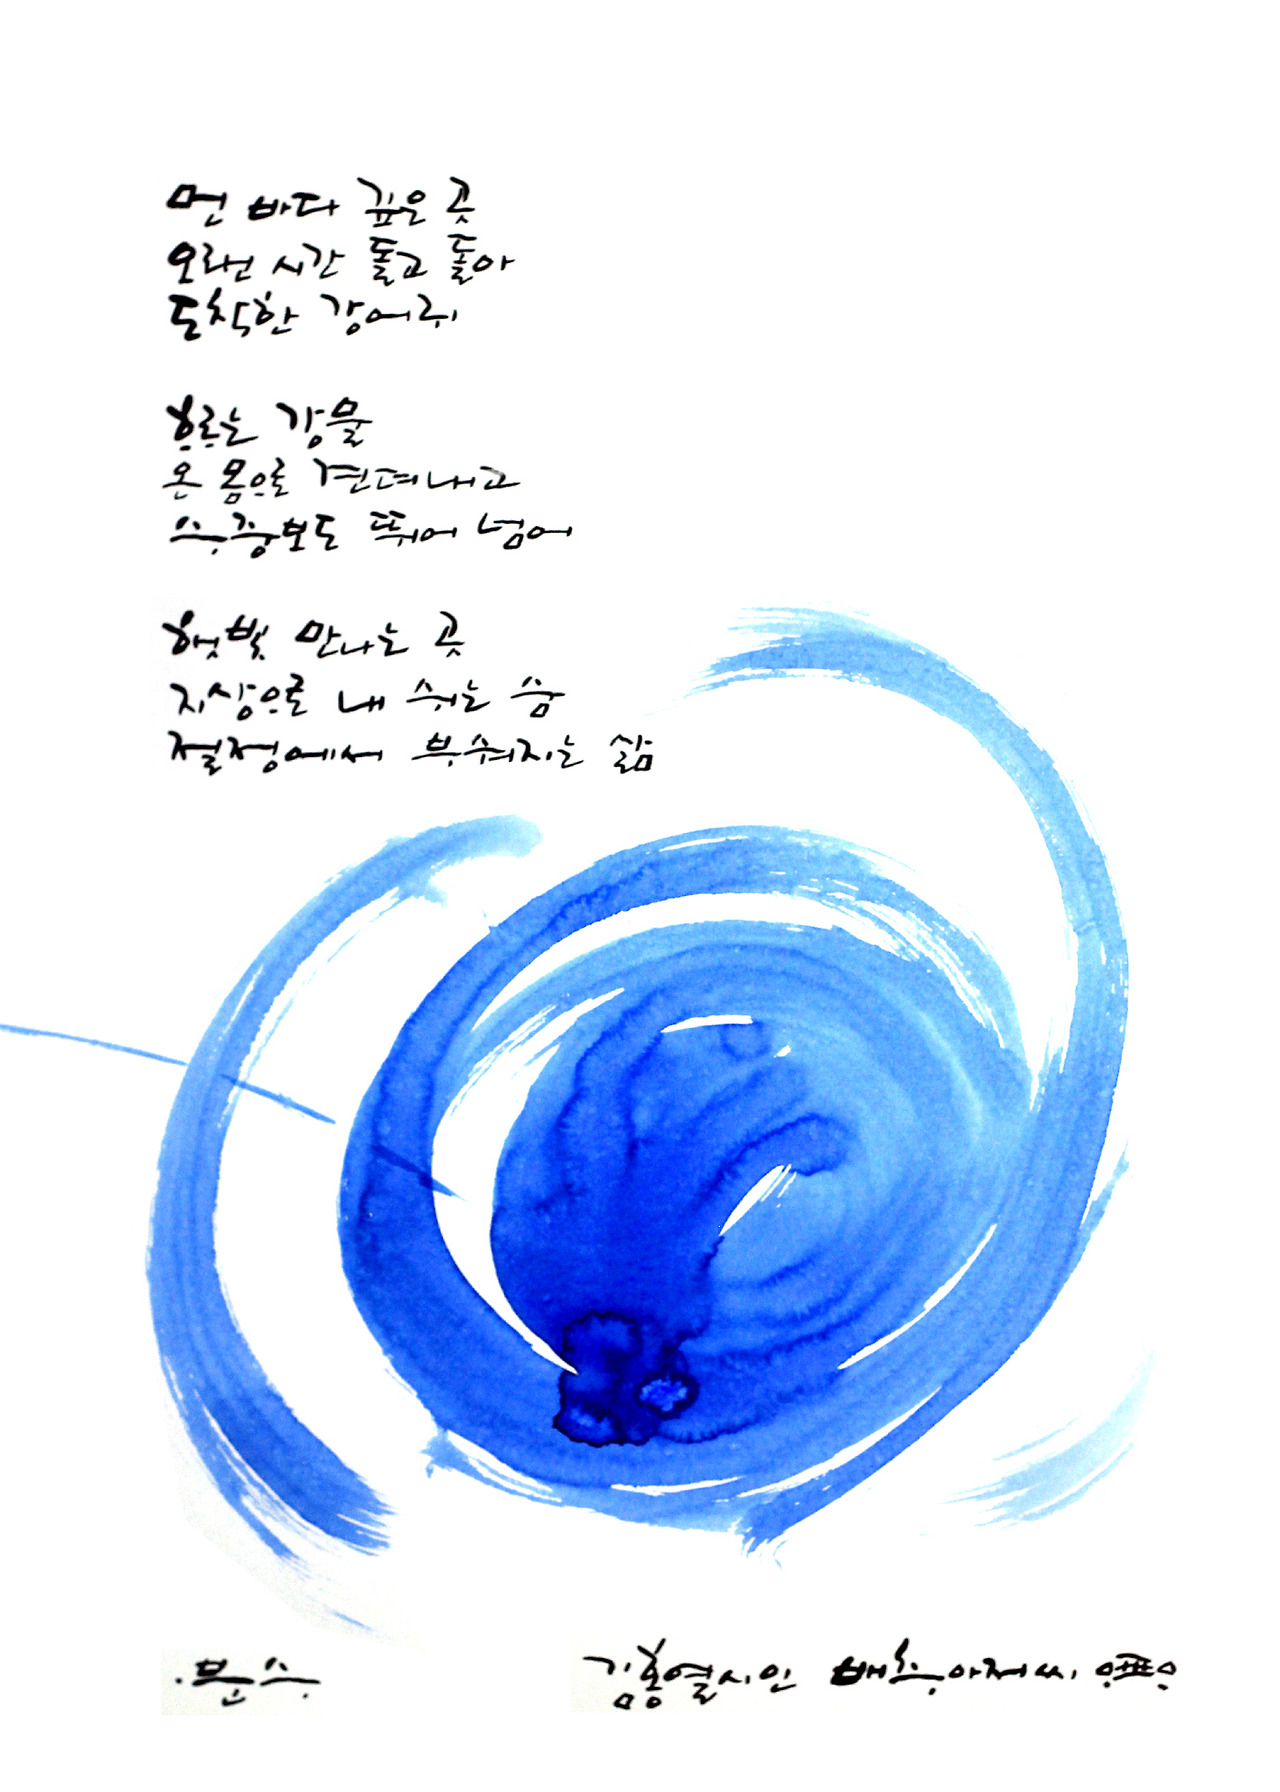 먼 바다 깊은 곳
오랜 시간 돌고 돌아
도착한 강어귀
흐르는 강물
온 몸으로 견뎌내고
수중보도 뛰어 넘어
햇빛 만나는 곳
지상으로 내 쉬는 숨
절정에서 부숴지는 삶
·분수
김홍열시인 배추아저씨